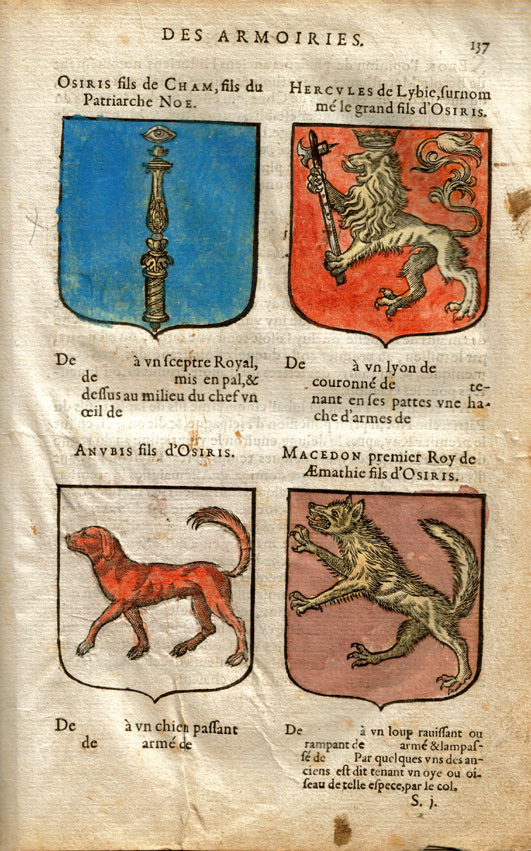 DES ARMOIRIES.
137
OSIRIS fils de CHAM, fils du
Patriarche NOE.
De à vn sceptre Royal,
de mis en pal,&
dessus au milieu du chef vn
œil de
HERCVLES de Lybie,surnom
mé le grand fils d'OSIRIS.
De à vn lyon de
couronné de te-
nant en ses pattes vne ha-
che d'armes de
ANVBIS fils d'OSIRIS.
De à vn chien passant
de armé de
MACEDON premier Roy de
Æmathie fils d'OSIRIS.
De à vn loup rauissant ou
rampant de armé & lampas-
sé de Par quelques vns des an-
ciens est dit tenant vn oye ou oi-
seau de telle espece,par le col.
S. j.